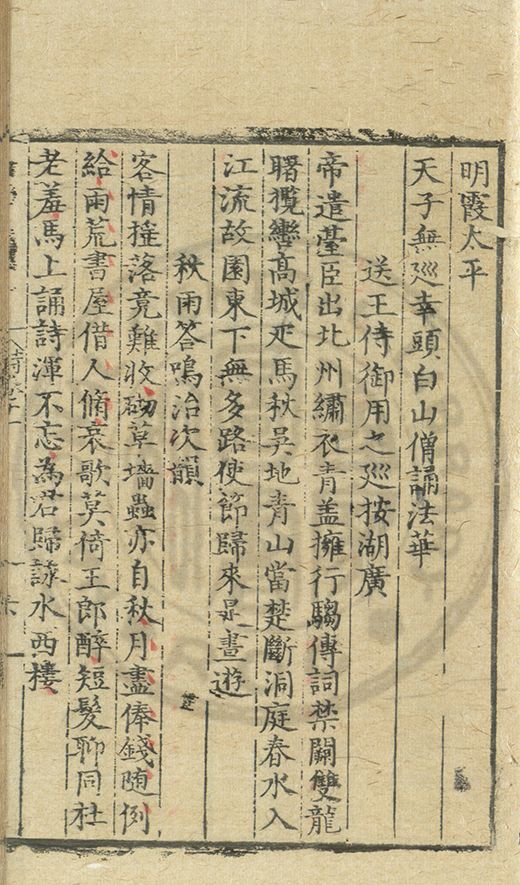 明霞太平
天子無巡幸頭白山僧誦法華
送王侍御用之巡按湖廣
帝遣臺臣出北州繡衣青盖擁行騶傳詞禁闕雙龍
曙攬轡高城疋馬秋吳地青山當楚斷洞庭春水入
江流故園東下無多路使節歸來是晝遊
秋雨答鳴治次韻
客情揺落竟難收砌草墻蟲亦自秋月盡俸錢随例
給雨荒書屋借人脩哀歌莫倚王郎醉短髮聊同杜
老羞馬上誦詩渾不忘為君歸詠水西樓